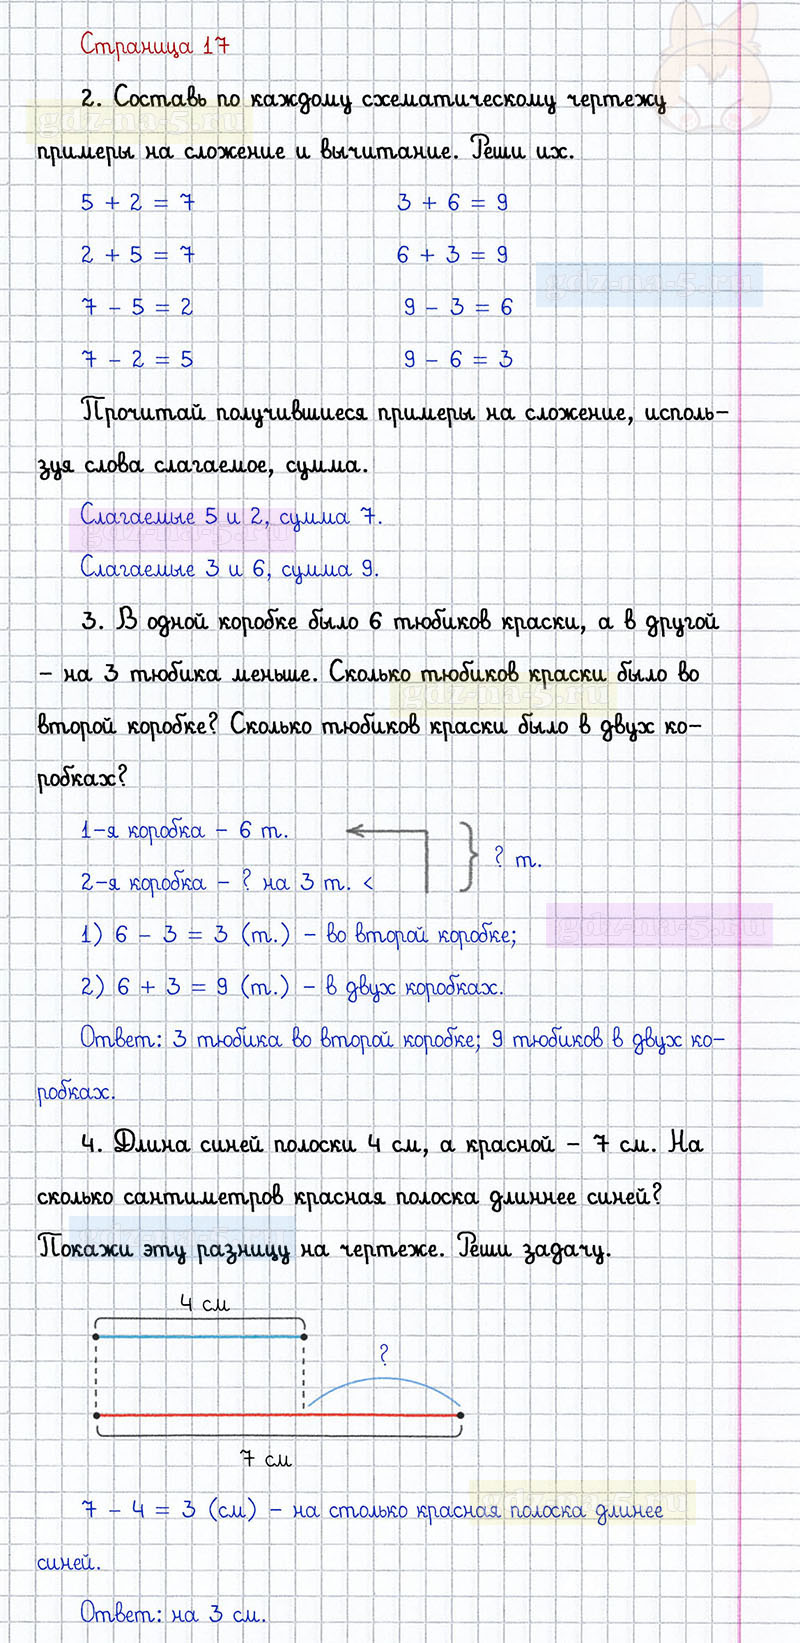 Страница 17
2. Составь по каждому схематическому чертежу
gdz-na-5.ru
примеры на сложение и вычитание. Реши их.
5 + 2 = 7 3 + 6 = 9
2 + 5 = 7 6 + 3 = 9
gdz-na-5.ru
7 - 5 = 2 9 - 3 = 6
7 - 2 = 5 9 - 6 = 3
Прочитай получившиеся примеры на сложение, исполь-
зуя слова слагаемое, сумма.
Слагаемые 5 и 2, сумма 7.
gdz-na-5.ru
Слагаемые 3 и 6, сумма 9.
3. В одной коробке было 6 тюбиков краски, а в другой
- на 3 тюбика меньше. Сколько тюбиков краски было во
gdz-na-5.ru
второй коробке? Сколько тюбиков краски было в двух ко-
робках?
1-я коробка - 6 т.
? т.
2-я коробка - ? на 3 т. <
1) 6 - 3 = 3 (т.) - во второй коробке;
gdz-na-5.ru
2) 6 + 3 = 9 (т.) - в двух коробках.
Ответ: 3 тюбика во второй коробке; 9 тюбиков в двух ко-
робках.
4. Длина синей полоски 4 см, а красной - 7 см. На
сколько сантиметров красная полоска длиннее синей?
gdz-na-5.ru
Покажи эту разницу на чертеже. Реши задачу.
4 см
?
7 см
gdz-na-5.ru
7 - 4 = 3 (см) - на столько красная полоска длинее
синей.
Ответ: на 3 см.